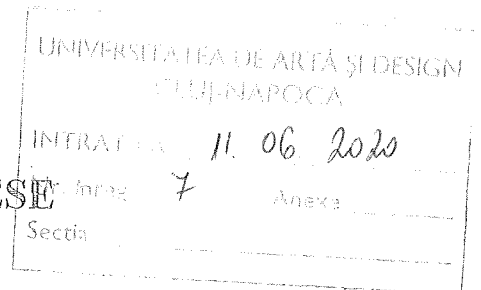 UNIVERSITATEA DE ARTĂ ȘI DESIGN
CLUJ-NAPOCA
INTRAT 11. 06 2020
Nr. Inreg 7 Anexa
Secția